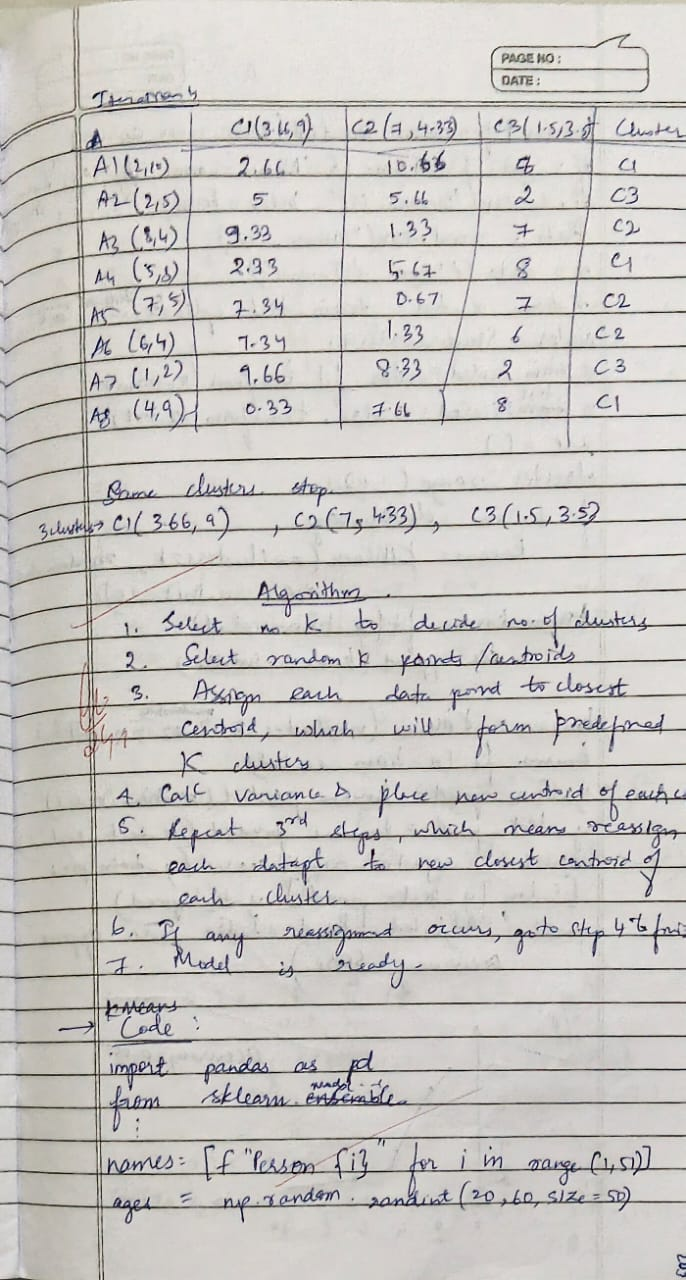 PAGE NO :
DATE :
Iteration 4
A C1(3.66,9) C2(7,4.33) C3(1.5,3.5) Cluster
A1(2,10) 2.66 10.66 8 C1
A2(2,5) 5 5.66 2 C3
A3(8,4) 9.33 1.33 7 C2
A4(5,8) 2.33 5.67 8 C1
A5(7,5) 7.34 0.67 7 C2
A6(6,4) 7.34 1.33 6 C2
A7(1,2) 9.66 8.33 2 C3
A8(4,9) 0.33 7.66 8 C1
Same clusters stop.
3 clusters → C1(3.66,9) , C2(7,4.33) , C3(1.5,3.5)
Algorithm
1. Select no K to decide no. of clusters
2. Select random K points /centroids
3. Assign each data point to closest
centroid, which will form predefined
K clusters
4. Calc variance & place new centroid of each c
5. Repeat 3rd steps, which means reassign
each datapt to new closest centroid of
each cluster
6. If any reassignment occurs, goto step 4
7. Model is ready.
KMeans
→ Code :
import pandas as pd
from sklearn. ensemble
:
names= [f "Person {i}" for i in range (1,51)]
ages = np.random.randint(20,60,size=50)